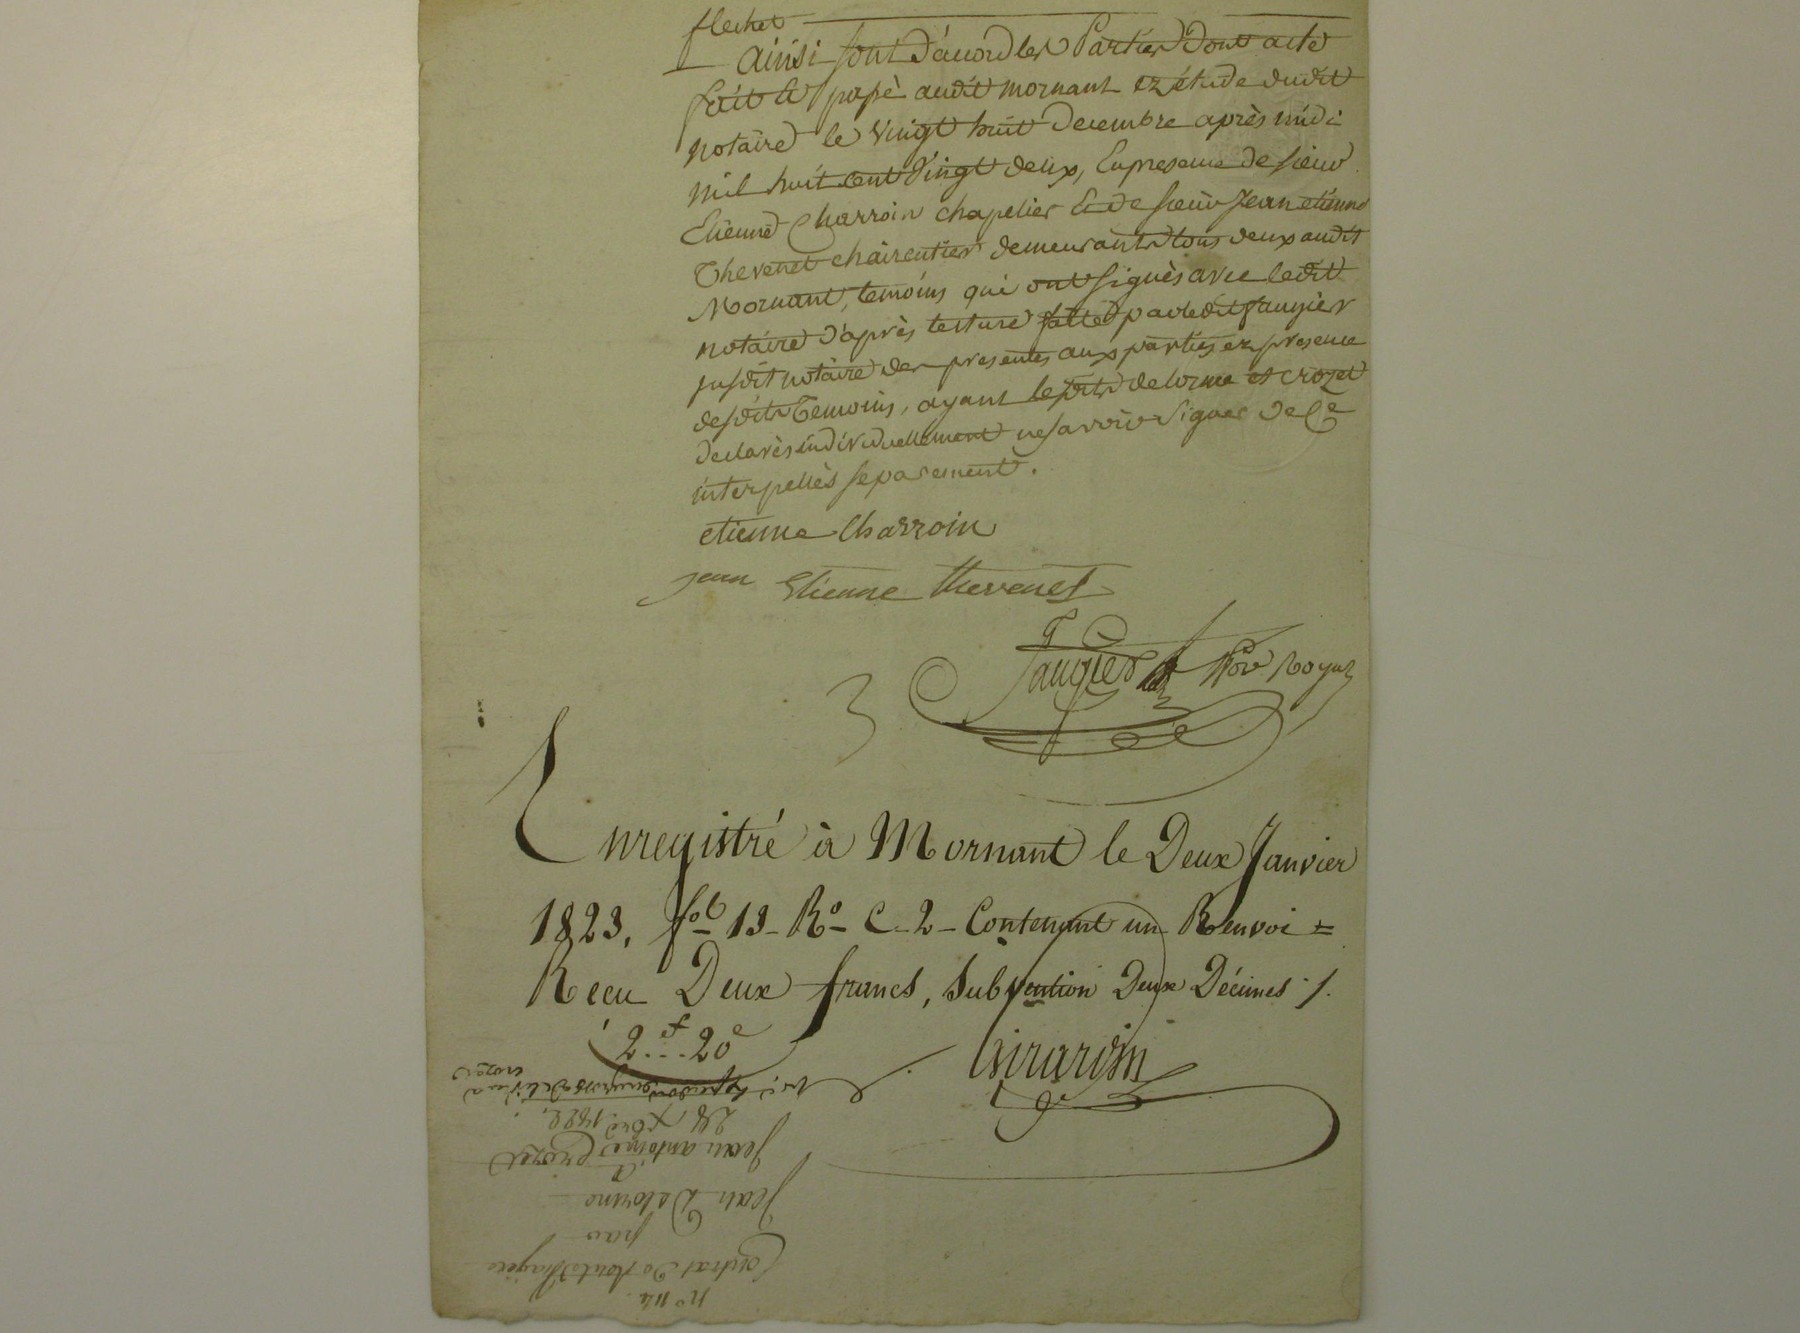 flechet
ainsi sont d'accord les Parties dont acte
fait et passé audit mornant ez étude dudit
notaire le vingt huit decembre après midi
mil huit cent vingt deux, En presence de sieur
Etienne Charroin chapelier Et de sieur Jean etienne
Thevenet chaircutier demeurants tous deux audit
Mornant, temoins qui ont signès avec ledit
notaire d'après lecture faite par ledit faugier
susdit notaire des presentes aux parties en presence
desdits Temoins, ayant lesdits delorme et crozet
declarès individuellement ne savoir signer de Ce
interpellès separement.
etienne Charroin
jean Etienne thevenet
faugier Nore Royal
3
Enregistré à Mornant le Deux Janvier
1823, fol 13 Ro C 2 Contenant un Renvoi =
Recu Deux francs, Subvention Deux Décimes ./.
2f....20c
Girardin
no 114
Contrat de Rente Viagère
par
Jean Delorme
à
Jean antoine Crozet
28 xbre 1822.
crozet